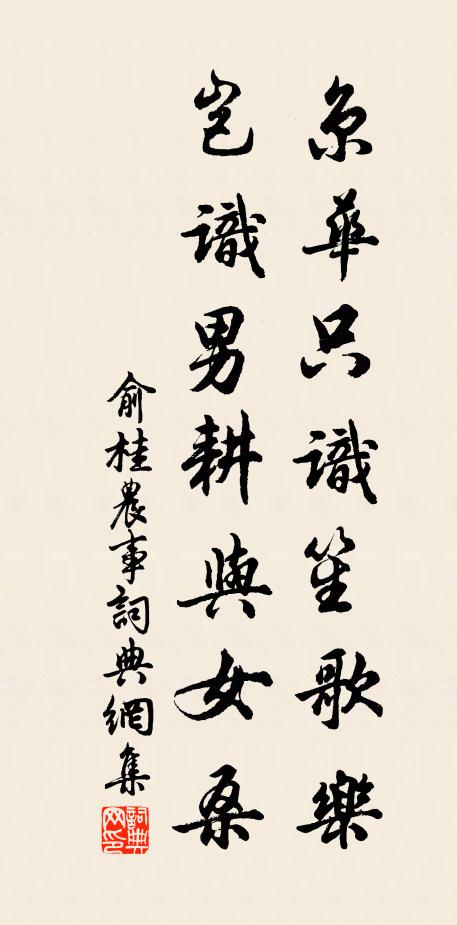 京華只識笙歌樂
豈識男耕與女桑
俞桂農事詞典網集
詞典网印